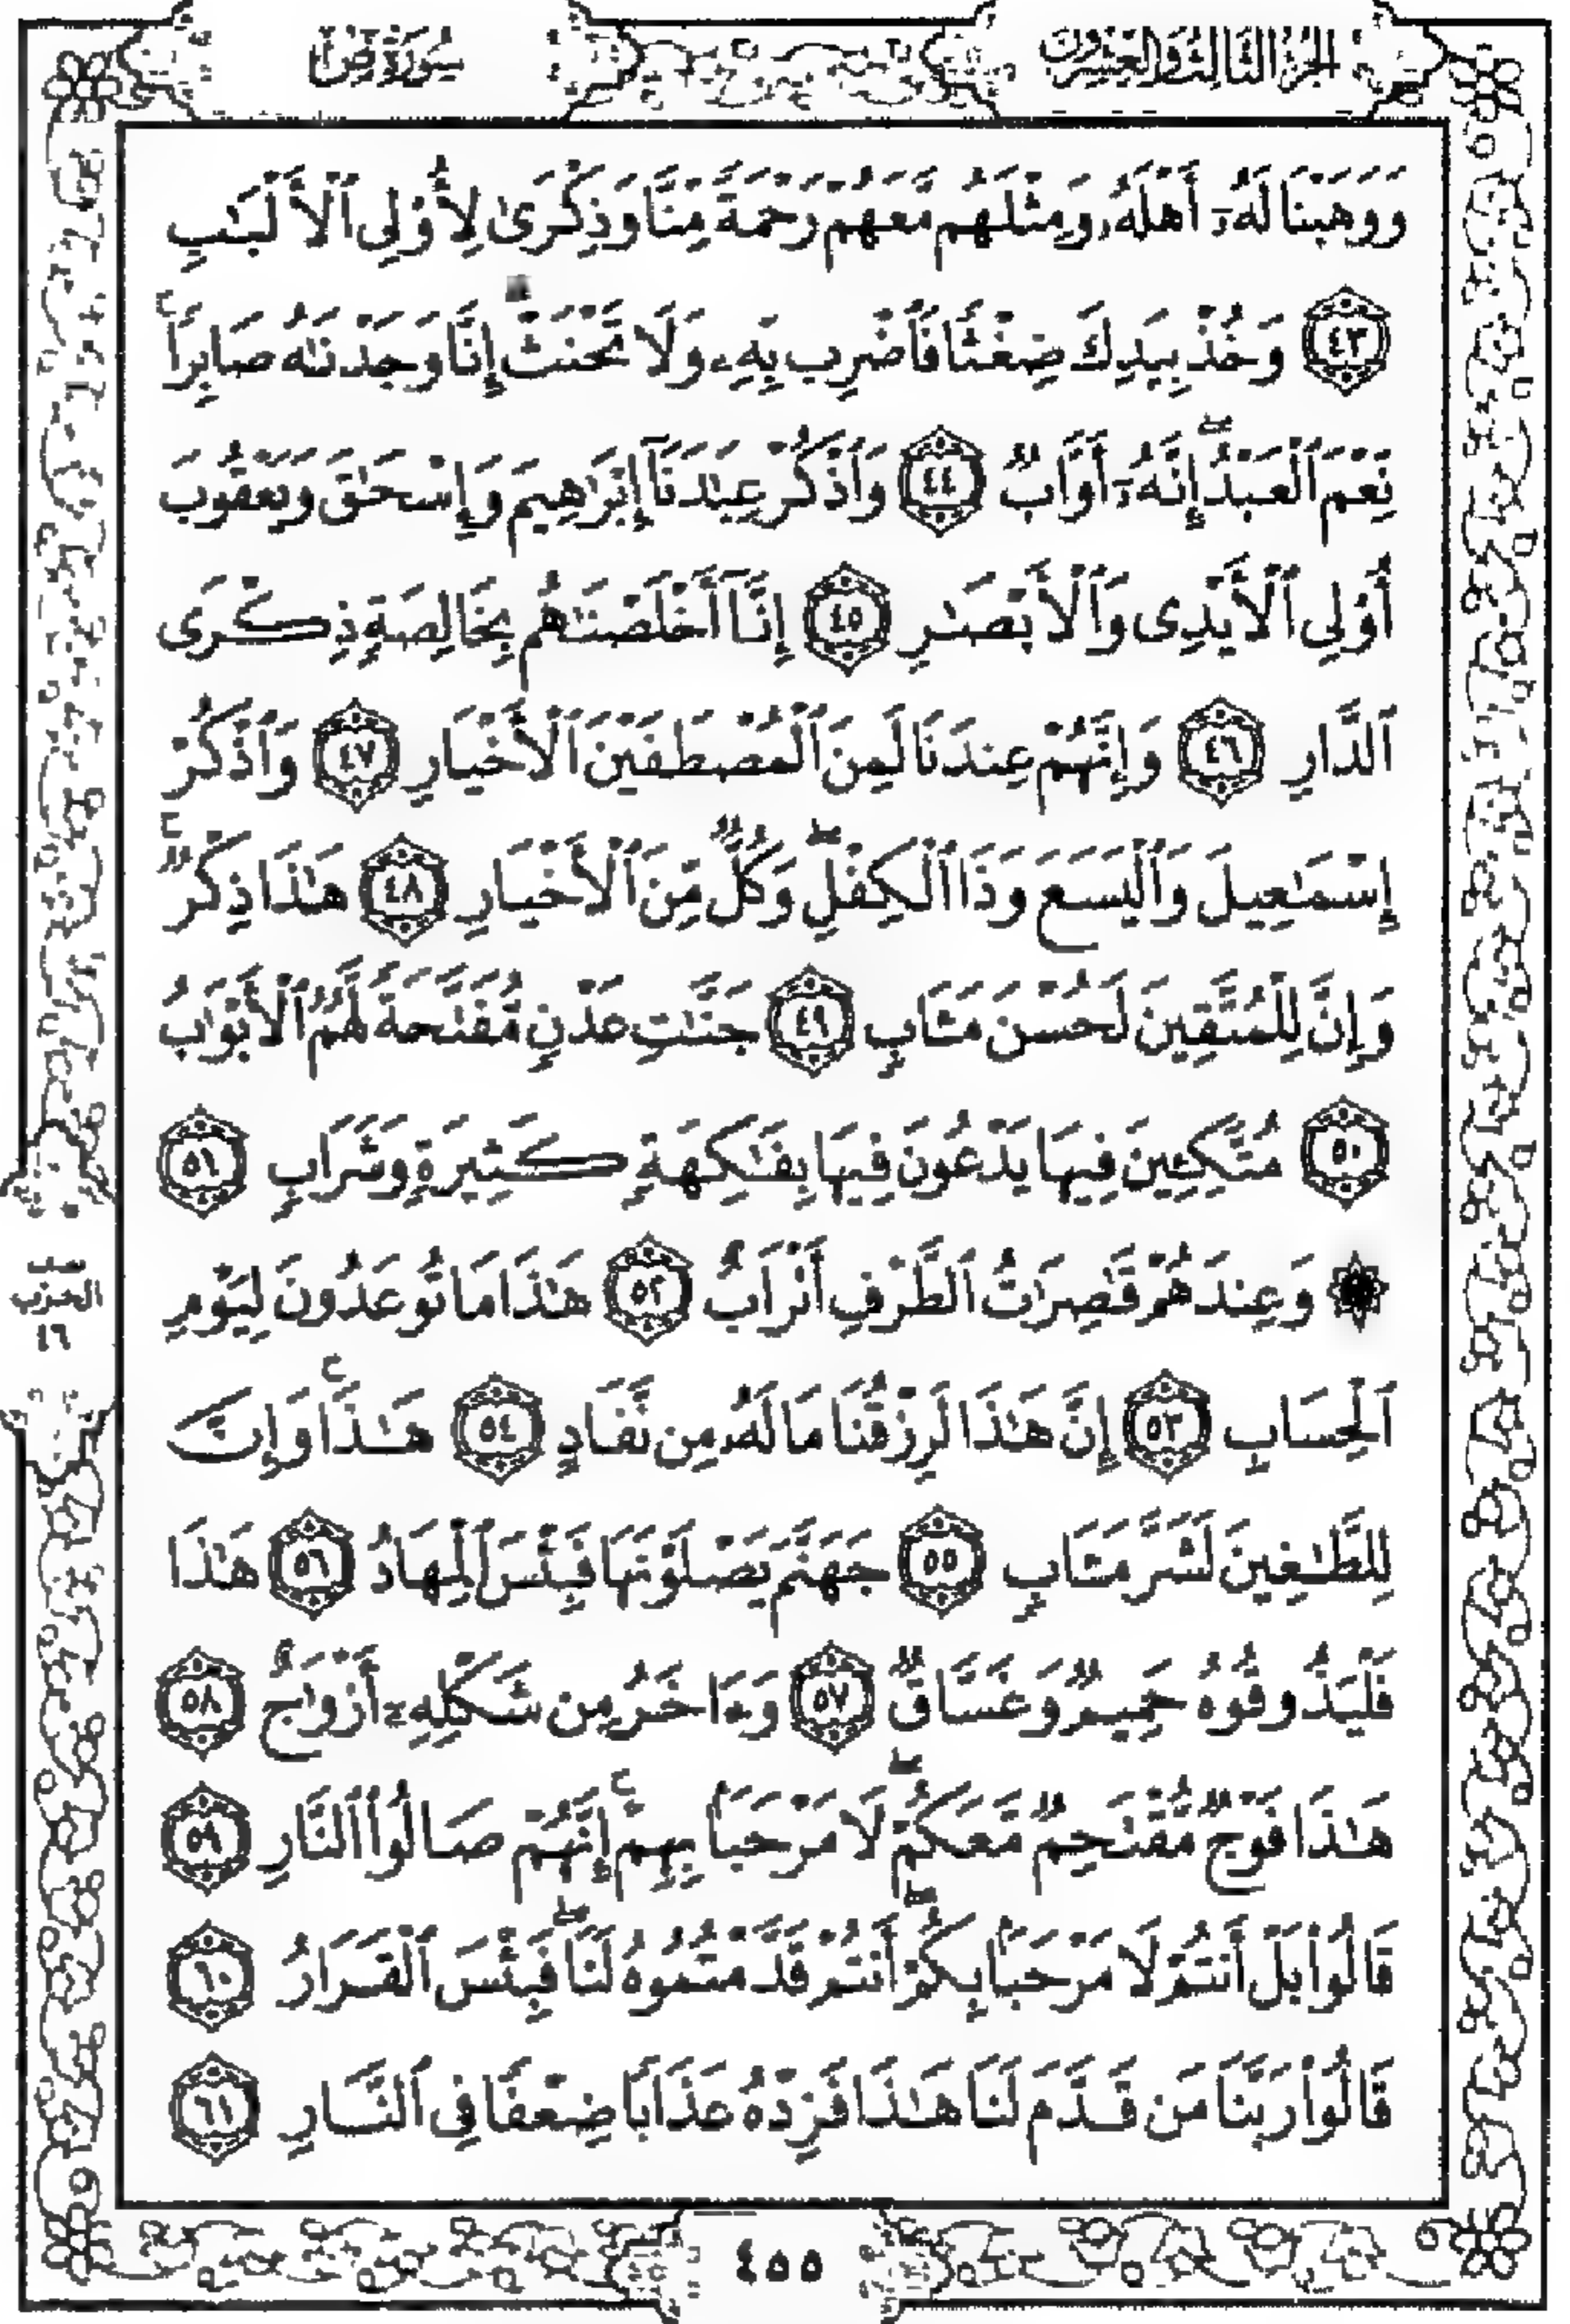 الجزء الثالث والعشرون
سورة ص
وَوَهَبْنَا لَهُۥٓ أَهْلَهُۥ وَمِثْلَهُم مَّعَهُمْ رَحْمَةً مِّنَّا وَذِكْرَىٰ لِأُو۟لِى ٱلْأَلْبَـٰبِ
٤٣ وَخُذْ بِيَدِكَ ضِغْثًا فَٱضْرِب بِّهِۦ وَلَا تَحْنَثْ ۗ إِنَّا وَجَدْنَـٰهُ صَابِرًا ۚ
نِّعْمَ ٱلْعَبْدُ ۖ إِنَّهُۥٓ أَوَّابٌ ٤٤ وَٱذْكُرْ عِبَـٰدَنَآ إِبْرَٰهِيمَ وَإِسْحَـٰقَ وَيَعْقُوبَ
أُو۟لِى ٱلْأَيْدِى وَٱلْأَبْصَـٰرِ ٤٥ إِنَّآ أَخْلَصْنَـٰهُم بِخَالِصَةٍ ذِكْرَى
ٱلدَّارِ ٤٦ وَإِنَّهُمْ عِندَنَا لَمِنَ ٱلْمُصْطَفَيْنَ ٱلْأَخْيَارِ ٤٧ وَٱذْكُرْ
إِسْمَـٰعِيلَ وَٱلْيَسَعَ وَذَا ٱلْكِفْلِ ۖ وَكُلٌّ مِّنَ ٱلْأَخْيَارِ ٤٨ هَـٰذَا ذِكْرٌ ۚ
وَإِنَّ لِلْمُتَّقِينَ لَحُسْنَ مَـَٔابٍ ٤٩ جَنَّـٰتِ عَدْنٍ مُّفَتَّحَةً لَّهُمُ ٱلْأَبْوَٰبُ
٥٠ مُتَّكِـِٔينَ فِيهَا يَدْعُونَ فِيهَا بِفَـٰكِهَةٍ كَثِيرَةٍ وَشَرَابٍ ٥١
۞ وَعِندَهُمْ قَـٰصِرَٰتُ ٱلطَّرْفِ أَتْرَابٌ ٥٢ هَـٰذَا مَا تُوعَدُونَ لِيَوْمِ
ٱلْحِسَابِ ٥٣ إِنَّ هَـٰذَا لَرِزْقُنَا مَا لَهُۥ مِن نَّفَادٍ ٥٤ هَـٰذَا ۚ وَإِنَّ
لِلطَّـٰغِينَ لَشَرَّ مَـَٔابٍ ٥٥ جَهَنَّمَ يَصْلَوْنَهَا فَبِئْسَ ٱلْمِهَادُ ٥٦ هَـٰذَا
فَلْيَذُوقُوهُ حَمِيمٌ وَغَسَّاقٌ ٥٧ وَءَاخَرُ مِن شَكْلِهِۦٓ أَزْوَٰجٌ ٥٨
هَـٰذَا فَوْجٌ مُّقْتَحِمٌ مَّعَكُمْ ۖ لَا مَرْحَبًۢا بِهِمْ ۚ إِنَّهُمْ صَالُوا۟ ٱلنَّارِ ٥٩
قَالُوا۟ بَلْ أَنتُمْ لَا مَرْحَبًۢا بِكُمْ ۖ أَنتُمْ قَدَّمْتُمُوهُ لَنَا ۖ فَبِئْسَ ٱلْقَرَارُ ٦٠
قَالُوا۟ رَبَّنَا مَن قَدَّمَ لَنَا هَـٰذَا فَزِدْهُ عَذَابًا ضِعْفًا فِى ٱلنَّارِ ٦١
الحزب
٤٦
٤٥٥